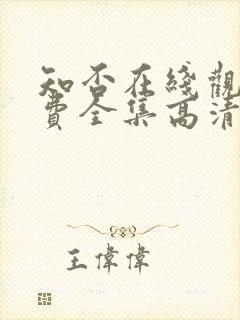 知否在綫觀
費全集高清
王偉偉